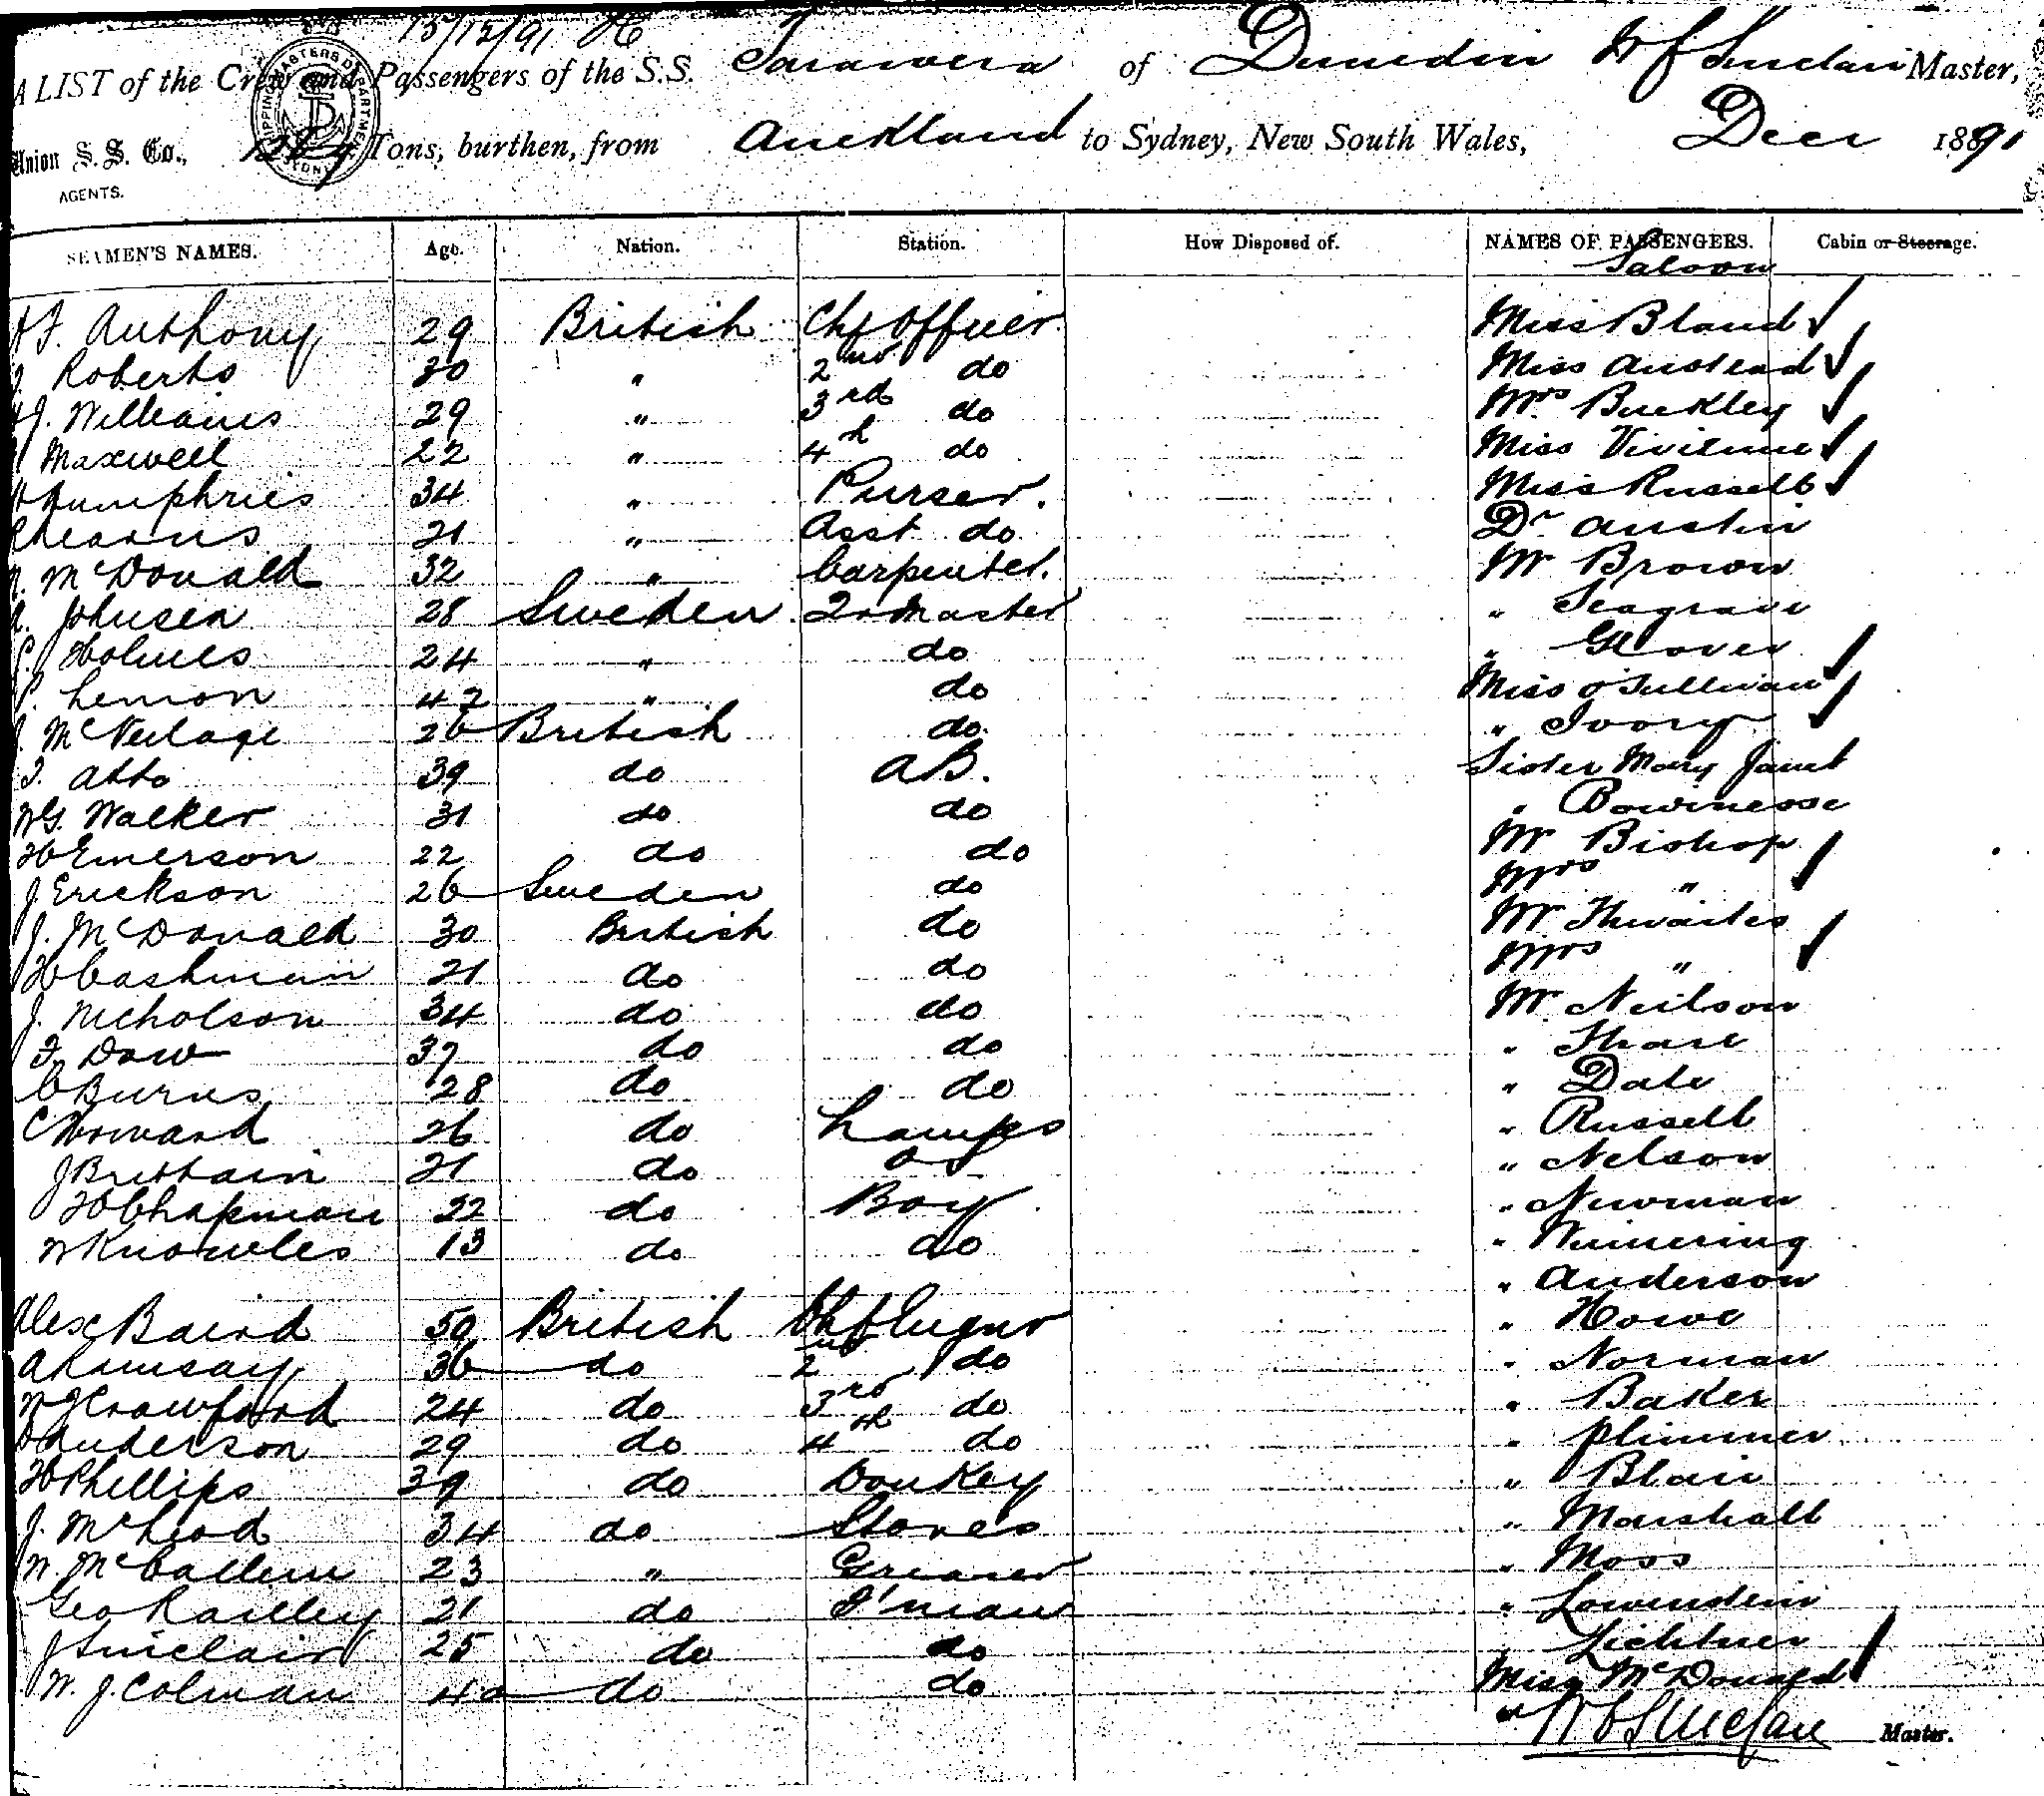 15/12/91
A LIST of the Crew and Passengers of the S.S. Tarawera of Dunedin W F Sinclair Master,
Union S. S. Co., Tons, burthen, from Auckland to Sydney, New South Wales, Decr 1891
AGENTS.
SEAMEN'S NAMES. Age. Nation. Station. How Disposed of. NAMES OF PASSENGERS. Cabin or Steerage.
Saloon
F. Anthony 29 British Chf Officer Miss Bland
Roberts 30 " 2nd do Miss Anstead
J. Williams 29 " 3rd do Mrs Buckley
Maxwell 22 " 4th do Miss
Humphries 34 " Purser. Miss Russell
21 " Asst do Dr Austin
McDonald 32 " Carpenter. Mr Brown
Johnsen 28 Sweden Qr Master " Seagrave
Holmes 24 " do " Glover
Lemon 42 " do Miss O'Sullivan
26 British do. " Ivory
39 do AB. Sister Mary Janet
WG. Walker 31 do do "
H Emerson 22 do do Mr Bishop
J Erickson 26 Sweden do Mrs "
J. McDonald 30 British do Mr Thwaites
H Cashman 21 do do Mrs "
J. Nicholson 34 do do Mr Neilson
F. Dow 37 do do "
C Burns 28 do do " Dale
C Howard 26 do Lamps " Russell
J Brittain 21 do OS " Nelson
H Chapman 22 do Boy " Newman
W Knowles 13 do do "
" Anderson
Alex Baird 50 British Chf Engnr " Howe
A Ramsay 36 do 2nd do " Norman
W J Crawford 24 do 3rd do " Baker
Anderson 29 do 4th do " Plimmer
H Phillips 39 do Donkey " Blair
J. McLeod 34 do Stores " Marshall
W. McCallum 23 " Greaser " Moss
Geo Railley 21 do F'man "
J Sinclair 25 do do " Lichtner
W. J. Colman 40 do do Miss McDonald
W F Sinclair Master.